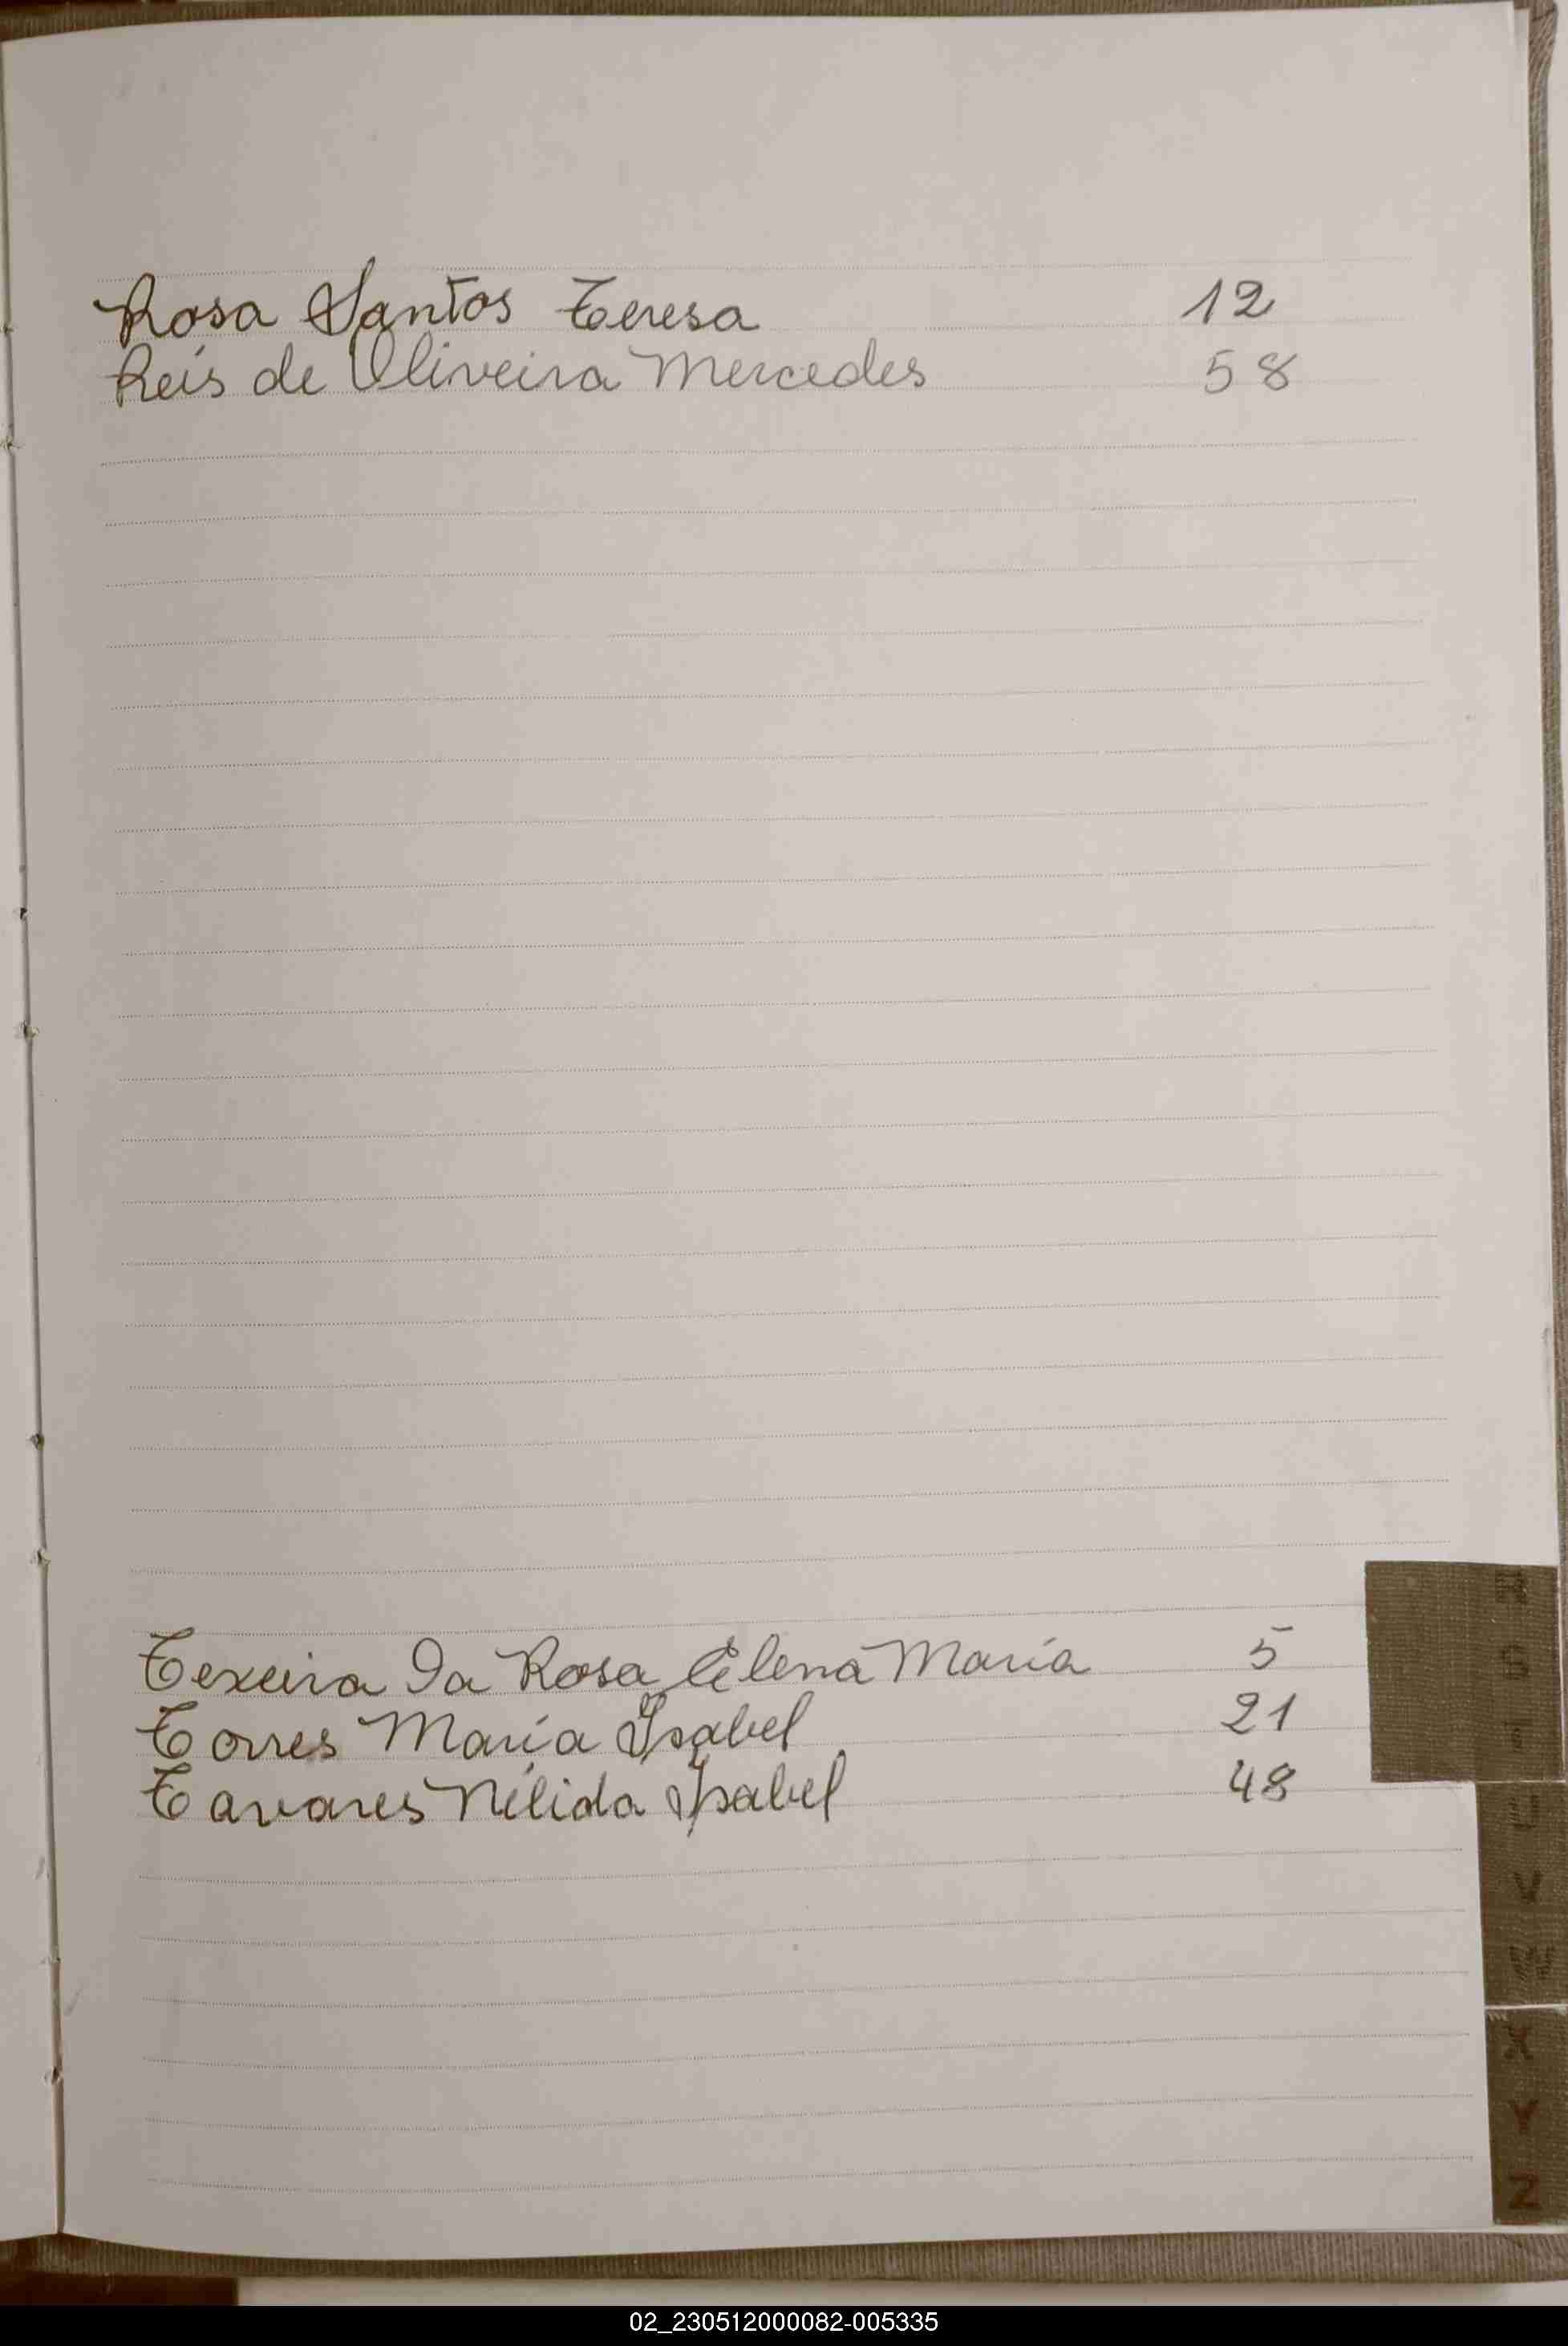 Rosa Santos Teresa 12
Reis de Oliveira Mercedes 58
Texeira Da Rosa Elena María 5
Torres María Isabel 21
Tavares Nélida Isabel 48
S
U
V
W
X
Y
Z
02_230512000082-005335